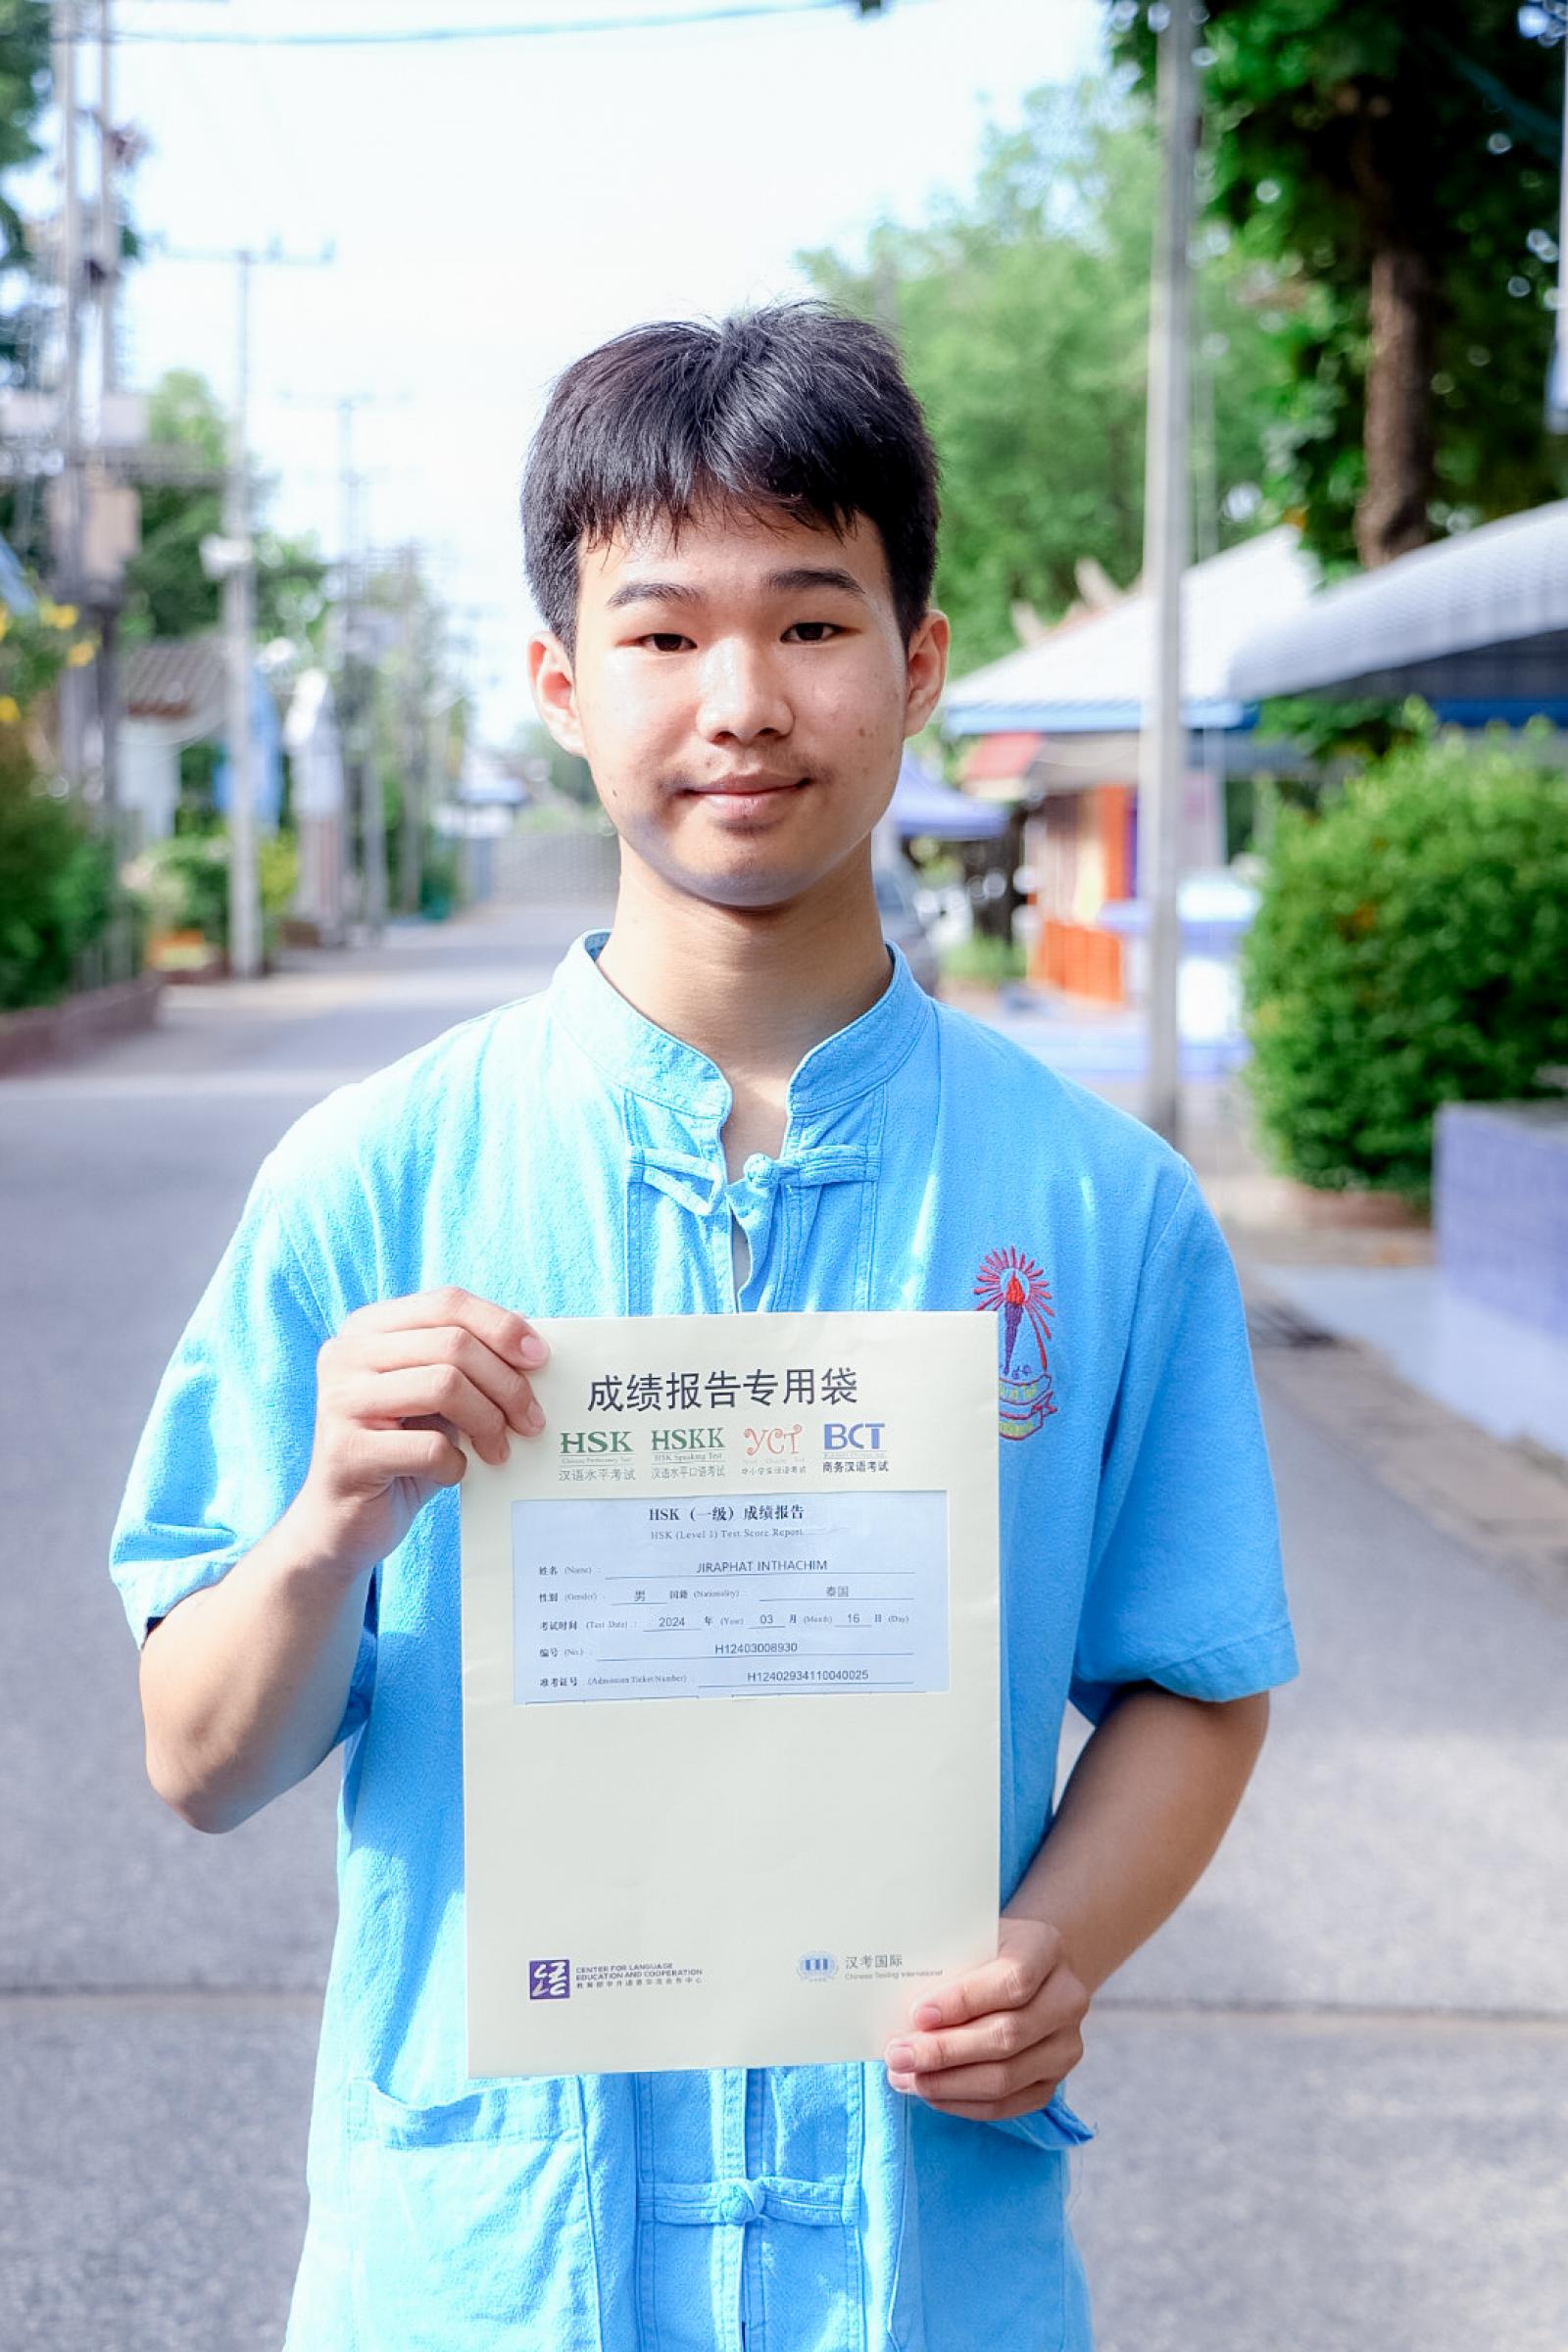 成绩报告专用袋
HSK HSKK YCT BCT
Chinese Proficiency Test HSK Speaking Test
汉语水平考试 汉语水平口语考试 中小学生汉语考试 商务汉语考试
HSK（一级）成绩报告
HSK (Level 1) Test Score Report
姓名 (Name) : JIRAPHAT INTHACHIM
性别 (Gender) : 男 国籍 (Nationality) : 泰国
考试时间 (Test Date) : 2024 年 (Year) 03 月 (Month) 16 日 (Day)
编号 (No.) : H12403008930
准考证号 (Admission Ticket Number) : H12402934110040025
CENTER FOR LANGUAGE
EDUCATION AND COOPERATION
教育部中外语言交流合作中心
汉考国际
Chinese Testing International